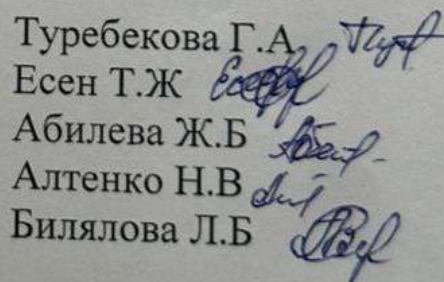 Туребекова Г.А
Есен Т.Ж
Абилева Ж.Б
Алтенко Н.В
Билялова Л.Б